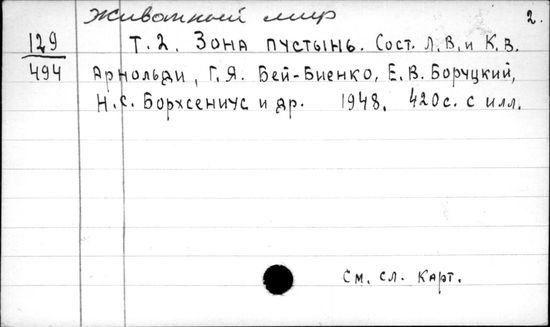 Животный мир 2.
129 Т. 2. Зона пустынь. Сост. Л. В. и К. В.
494 Арнольди, Г. Я. Бей-Биенко, Е. В. Боруцкий,
Н. С. Борхсениус и др. 1948. 420 с. с илл.
См. сл. карт.